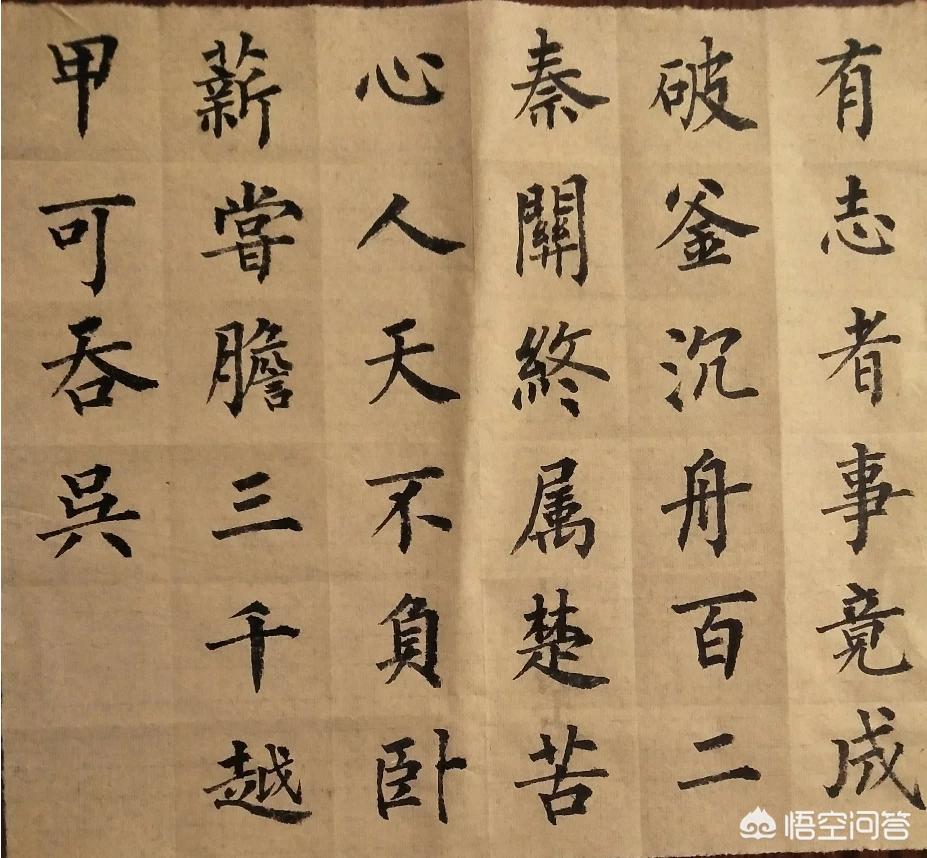 有志者事竟成
破釜沉舟百二
秦關終属楚苦
心人天不負卧
薪嘗膽三千越
甲可吞吳
悟空问答